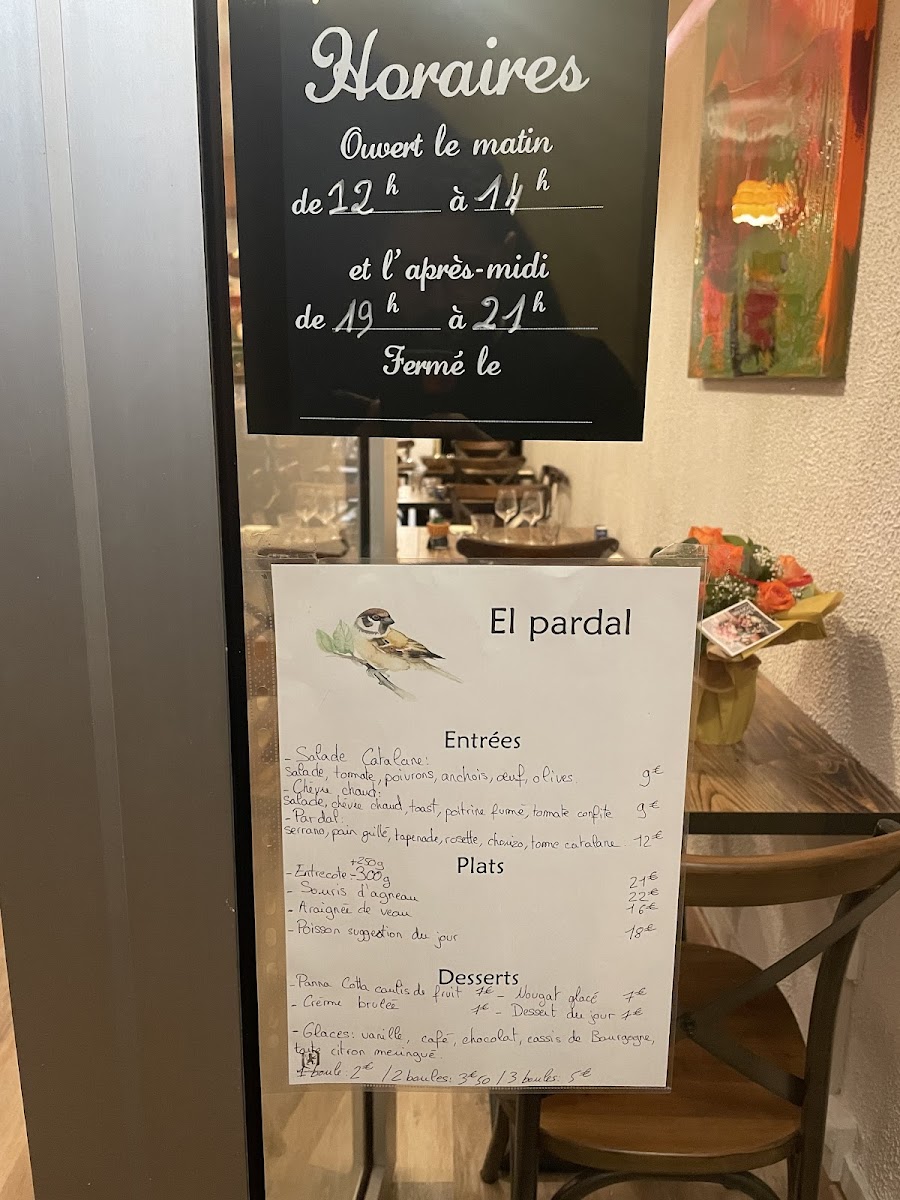 Horaires
Ouvert le matin
de 12 h à 14 h
et l'après-midi
de 19 h à 21 h
Fermé le
El pardal
Entrées
- Salade Catalane:
salade, tomate, poivrons, anchois, œuf, olives. 9€
- Chèvre chaud:
salade, chèvre chaud, toast, poitrine fumé, tomate confite 9€
- Pardal:
serrano, pain grillé, tapenade, rosette, chorizo, tome catalane. 12€
Plats
±250g
- Entrecote - 300g 21€
- Souris d'agneau 22€
- Araignée de veau 16€
- Poisson suggestion du jour 18€
Desserts
- Panna Cotta coulis de fruit 7€ - Nougat glacé 7€
- Crème brulée 7€ - Dessert du jour 7€
- Glaces: vanille, café, chocolat, cassis de Bourgogne,
tarte citron meringué.
1 boule: 2€ / 2 boules: 3€50 / 3 boules: 5€